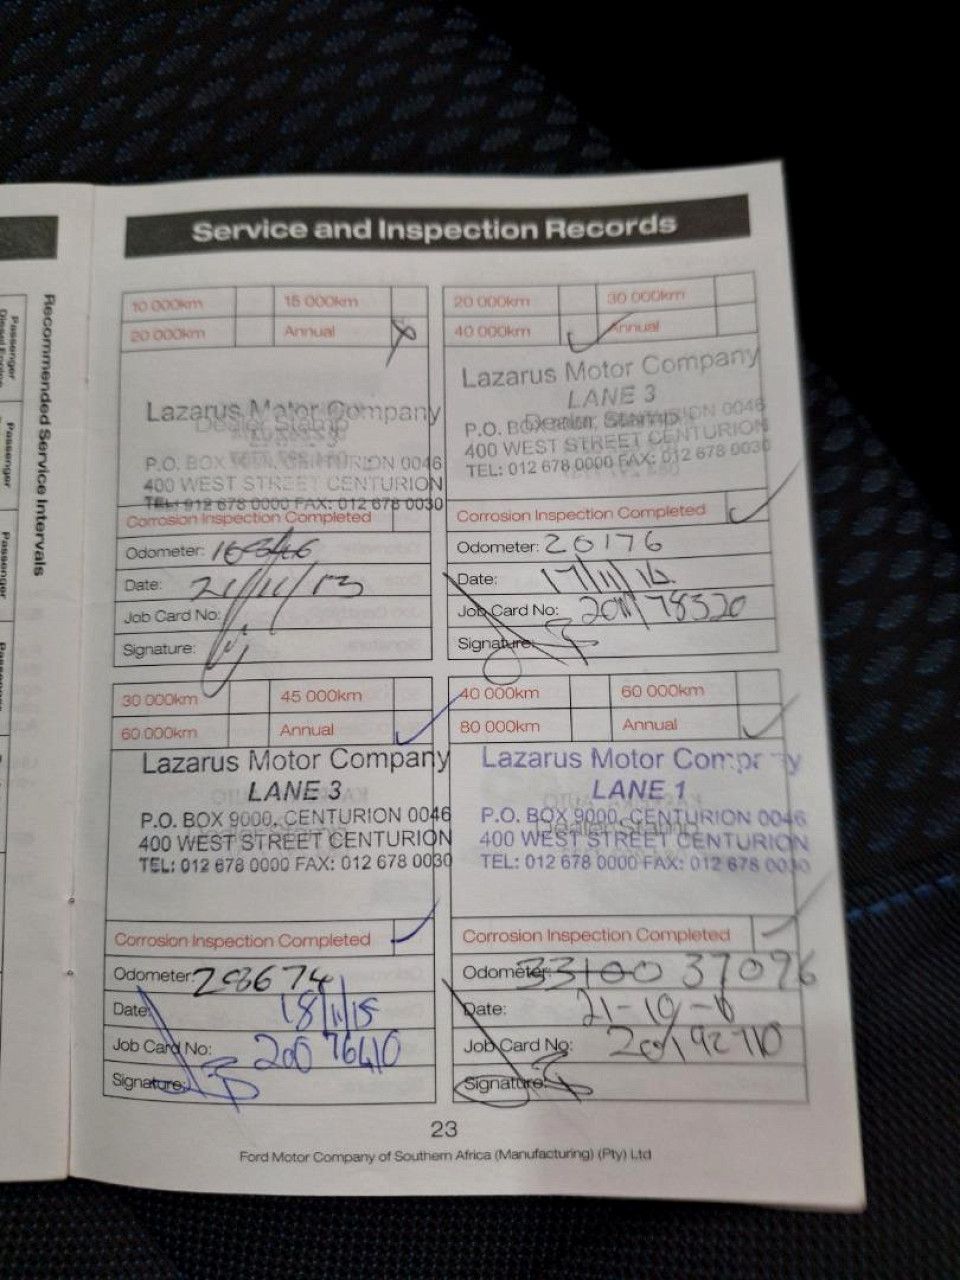 Service and Inspection Records
10 000km 15 000km
20 000km Annual
Lazarus Motor Company
Dealer Stamp
P.O. BOX CENTURION 0046
400 WEST STREET CENTURION
TEL: 012 678 0000 FAX: 012 678 0030
Corrosion Inspection Completed
Odometer:
Date: 21/11/13
Job Card No:
Signature:
20 000km 30 000km
40 000km Annual
Lazarus Motor Company
LANE 3
Dealer Stamp
P.O. BOX CENTURION 0046
400 WEST STREET CENTURION
TEL: 012 678 0000 FAX: 012 678 0030
Corrosion Inspection Completed
Odometer: 20176
Date: 17/11/
Job Card No: 78320
Signature:
30 000km 45 000km
60 000km Annual
Lazarus Motor Company
LANE 3
P.O. BOX 9000, CENTURION 0046
Dealer Stamp
400 WEST STREET CENTURION
TEL: 012 678 0000 FAX: 012 678 0030
Corrosion Inspection Completed
Odometer: 28674
Date: 18/11/15
Job Card No: 200 76410
Signature:
40 000km 60 000km
80 000km Annual
Lazarus Motor Company
LANE 1
P.O. BOX 9000, CENTURION 0046
Dealer Stamp
400 WEST STREET CENTURION
TEL: 012 678 0000 FAX: 012 678 0030
Corrosion Inspection Completed
Odometer: 33100 37096
Date: 21-10-
Job Card No: 92710
Signature:
23
Ford Motor Company of Southern Africa (Manufacturing) (Pty) Ltd
Recommended Service Intervals
Passenger
Diesel Engine
Passenger
Passenger